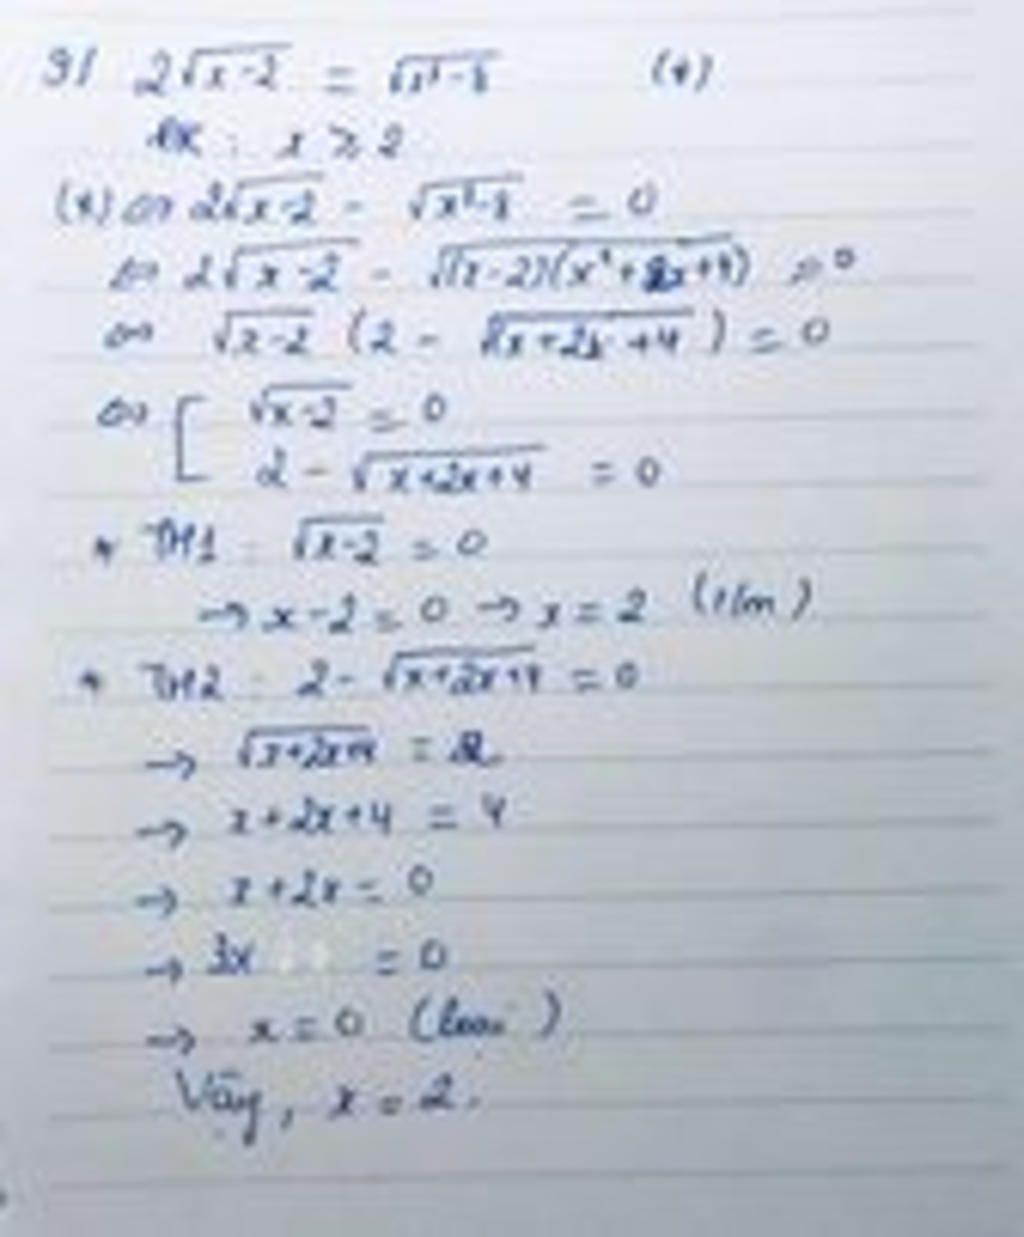 9/ 2√(x-2) = √(x³-8) (*)
ĐK: x ≥ 2
(*) ⇔ 2√(x-2) - √(x³-8) = 0
⇔ 2√(x-2) - √((x-2)(x²+2x+4)) = 0
⇔ √(x-2) (2 - √(x+2x+4)) = 0
⇔ [ √(x-2) = 0
2 - √(x+2x+4) = 0
* TH1: √(x-2) = 0
→ x-2 = 0 → x = 2 (t/m)
* TH2: 2 - √(x+2x+4) = 0
→ √(x+2x+4) = 2
→ x+2x+4 = 4
→ x+2x = 0
→ 3x = 0
→ x = 0 (loại)
Vậy, x = 2.